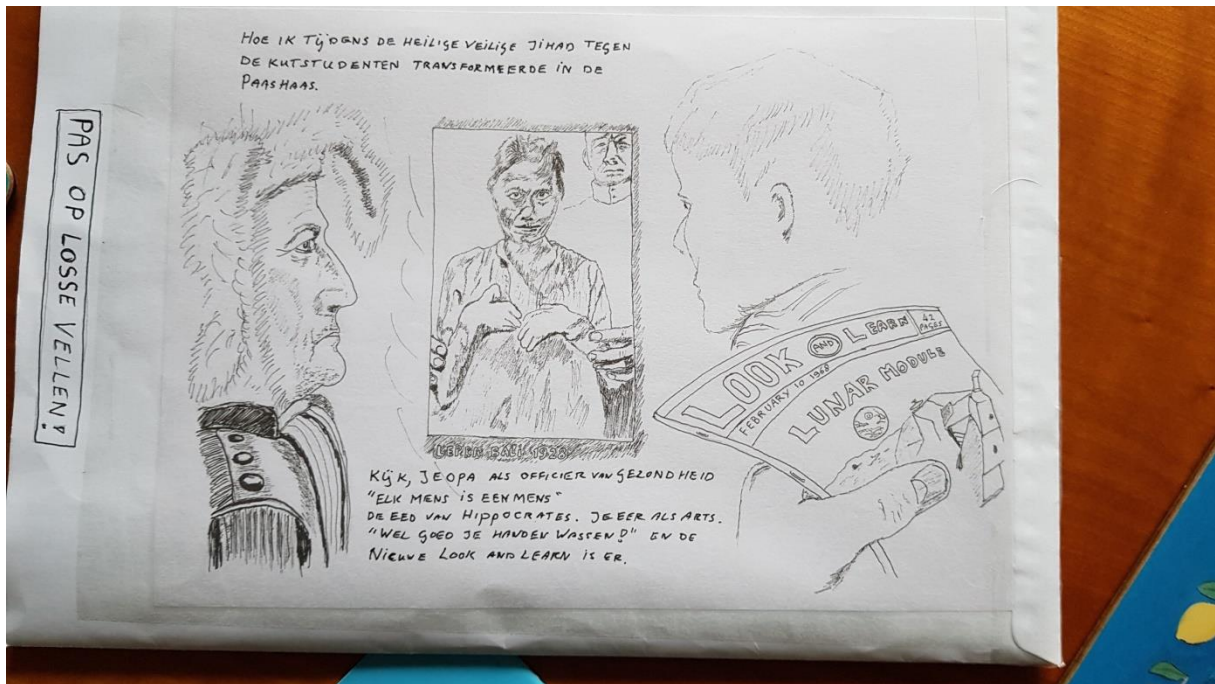 HOE IK TIJDENS DE HEILIGE VEILIGE JIHAD TEGEN
DE KUTSTUDENTEN TRANSFORMEERDE IN DE
PAASHAAS.
PAS OP LOSSE VELLEN!
LEPRA BALI 1928
LOOK AND LEARN 42 PAGES
FEBRUARY 10 1968
LUNAR MODULE
KIJK, JE OPA ALS OFFICIER VAN GEZONDHEID
"ELK MENS IS EEN MENS"
DE EED VAN HIPPOCRATES. JE EER ALS ARTS.
"WEL GOED JE HANDEN WASSEN!" EN DE
NIEUWE LOOK AND LEARN IS ER.